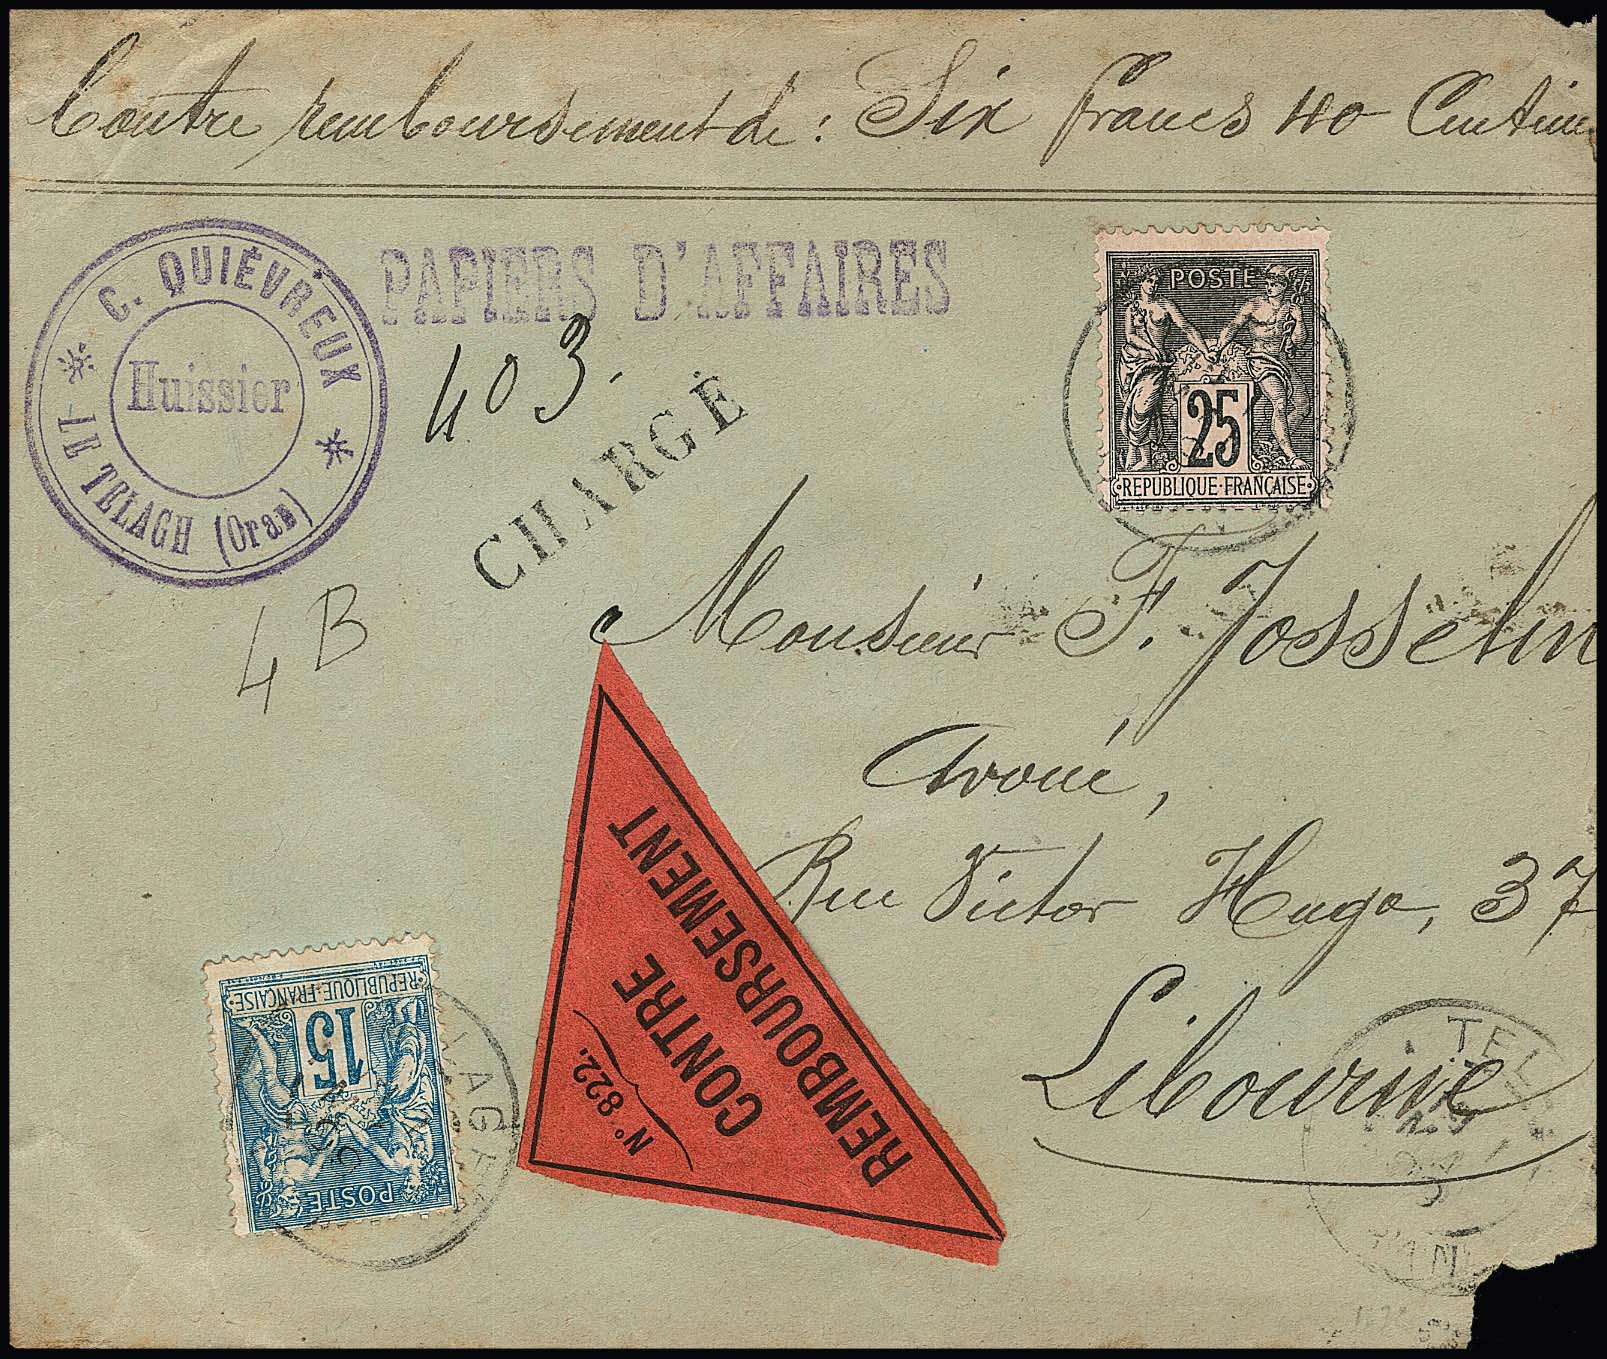 Contre remboursement de : Six francs 40 Centime
C. QUIÉVREUX
Huissier
LE TELAGH (Oran)
PAPIERS D'AFFAIRES
403.
CHARGÉ
POSTE
25
REPUBLIQUE·FRANÇAISE
4 B
Monsieur F. Josselin
Avoué,
Rue Victor Hugo, 37
Libourne
CONTRE
REMBOURSEMENT
N° 822.
REPUBLIQUE·FRANÇAISE
15
POSTE
LAGH
TEL